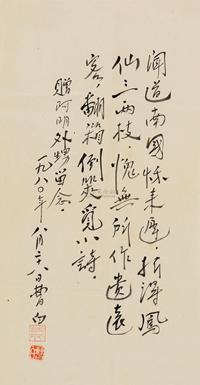 闻道南國秋来遲，折得鳳
仙三两枝。愧無所作遺遠
客，翻箱倒箧覓小詩。
贈阿明外甥留念。
一九八〇年八月二十八日曹白